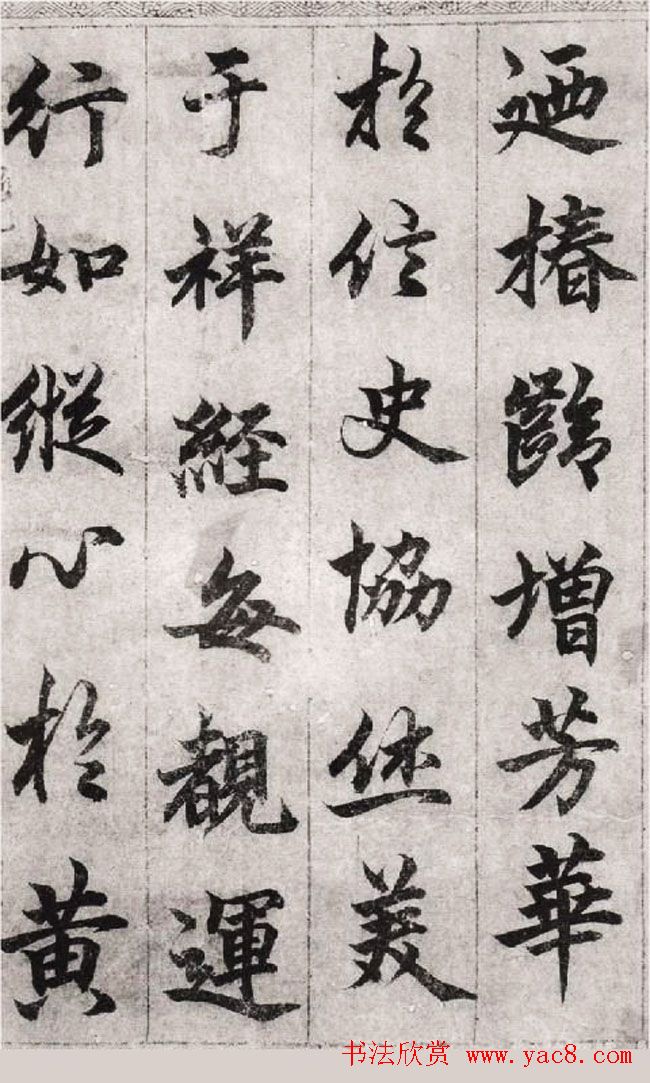 迺椿齡增芳華
於信史協休美
于祥經每覩運
行如縱心於黃
书法欣赏 www.yac8.com